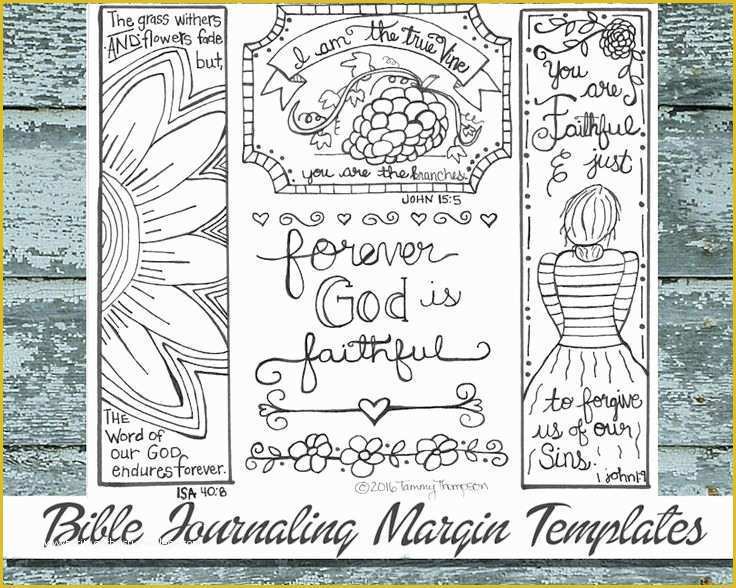 The grass withers
AND flowers fade
but,
THE
Word of
our GOD
endures forever.
ISA 40:8
I am the true Vine
you are the branches.
JOHN 15:5
forever
God is
faithful
©2016 Tammy Thompson
You are
Faithful
& just
to forgive
us of our
Sins.
1 john 1:9
Bible Journaling Margin Templates